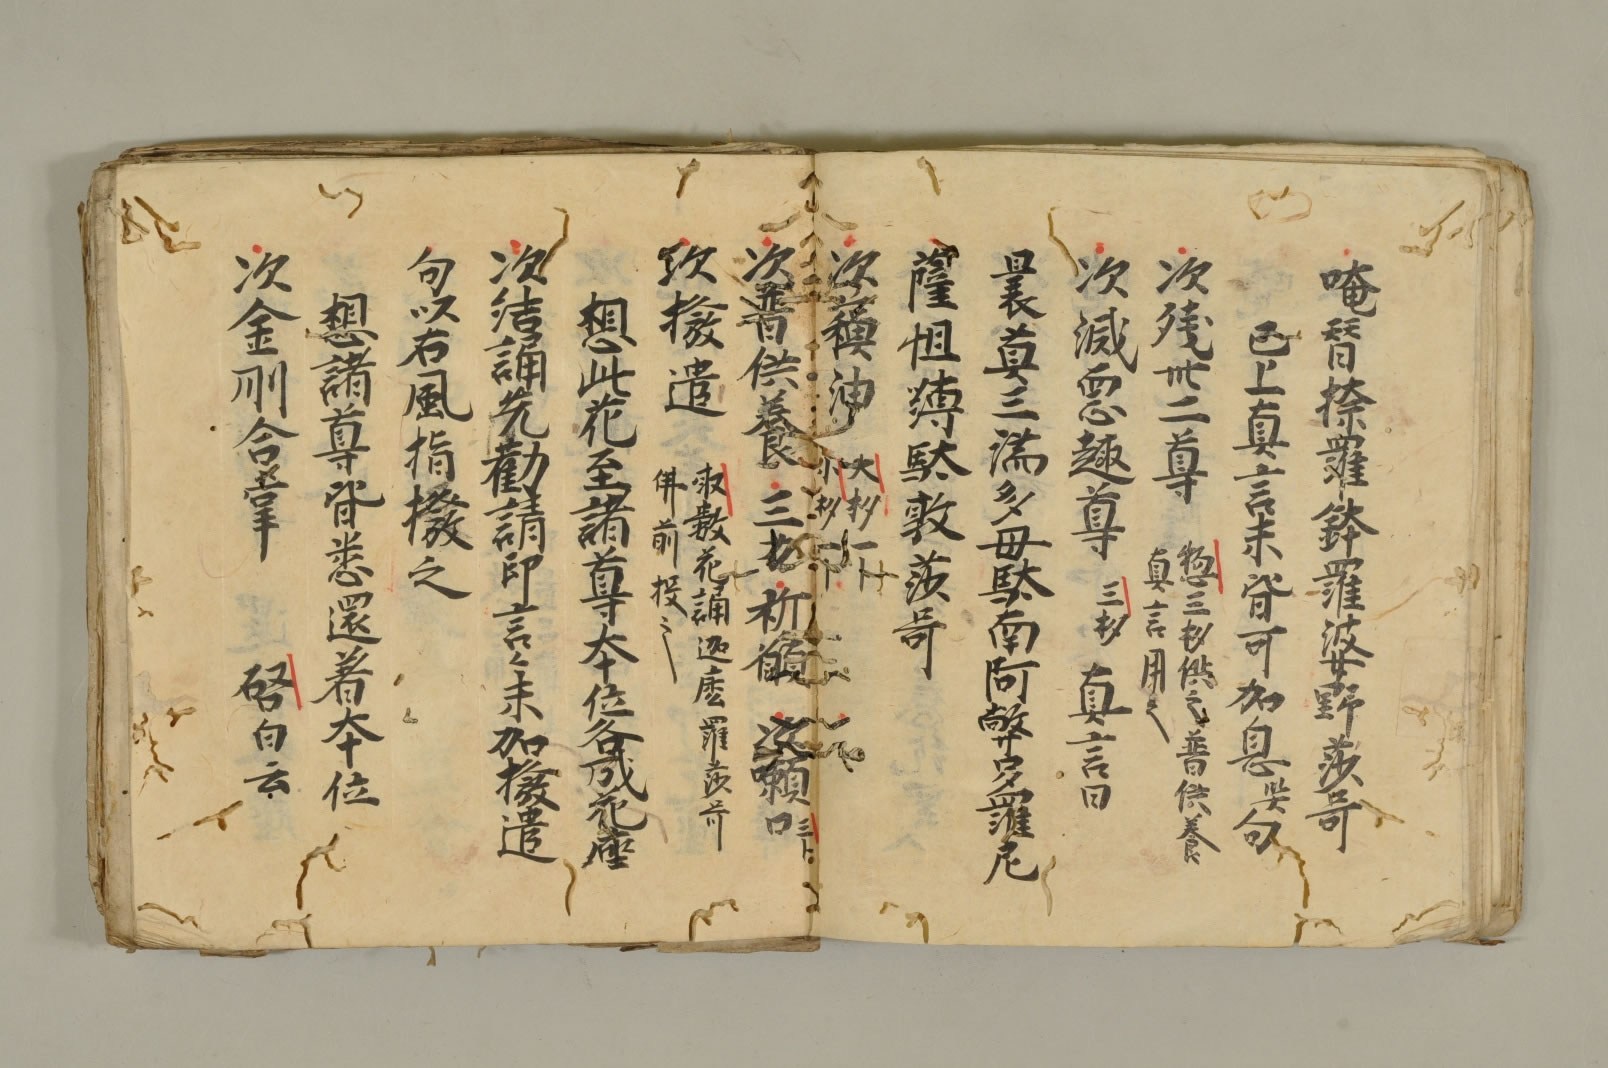 唵替捺羅鉢羅波野莎呵
已上真言末皆可加息災句
次残卅二尊 惣三杓供之普供養
真言用之
次滅悪趣尊 三杓 真言曰
曩莫三満多母駄南阿弊多羅尼
薩怛縛駄敦莎呵
次蘓油 大杓一
小杓一
次普供養 三力 祈願 次嗽口 三下
次撥遣 取敷花誦迦麼羅莎呵
供前投之
想此花至諸尊本位各成花座
次結誦先勸請印言々末加撥遣
句以右風指撥之
想諸尊皆悉還着本位
次金剛合掌 啓白云